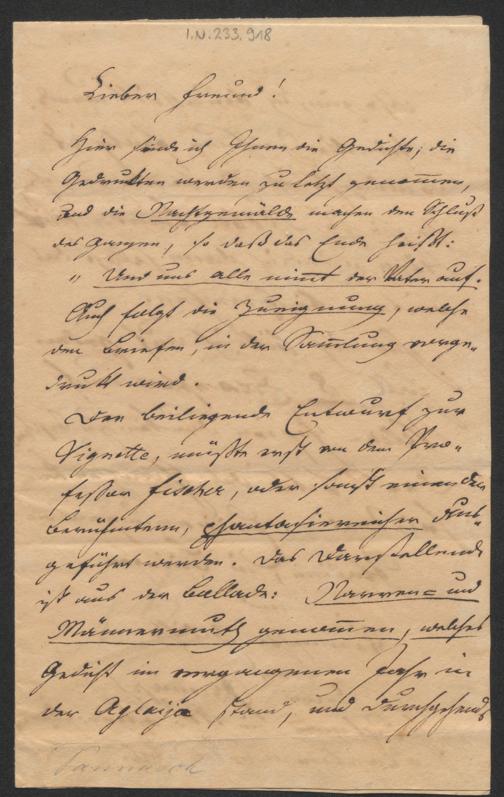 I.N. 233.918
Lieber Freund!
Hier sende ich Ihnen die Gedichte; die
Gedrukten werden zu letzt genom̅en,
und die Nachtgemälde machen den Schluß
des Ganzen, so daß das Ende heißt:
„Und uns alle nim̅t der Vater auf.
Auch folgt die Zueignung, welche
den Briefen, in der Sam̅lung vorge„
drukt wird.
Den beiliegende Entwurf zur
Vignette, müßte erst von dem Pro„
feßor Fischer, oder sonst einem der
Berühmtern, phantasiereicher Aus„
geführt werden. Das Darstellende
ist aus der Ballade: Narren= und
Männermuth genom̅en, welches
Gedicht im vergangenen Jahr in
der Aglaija stand, und durchgehends